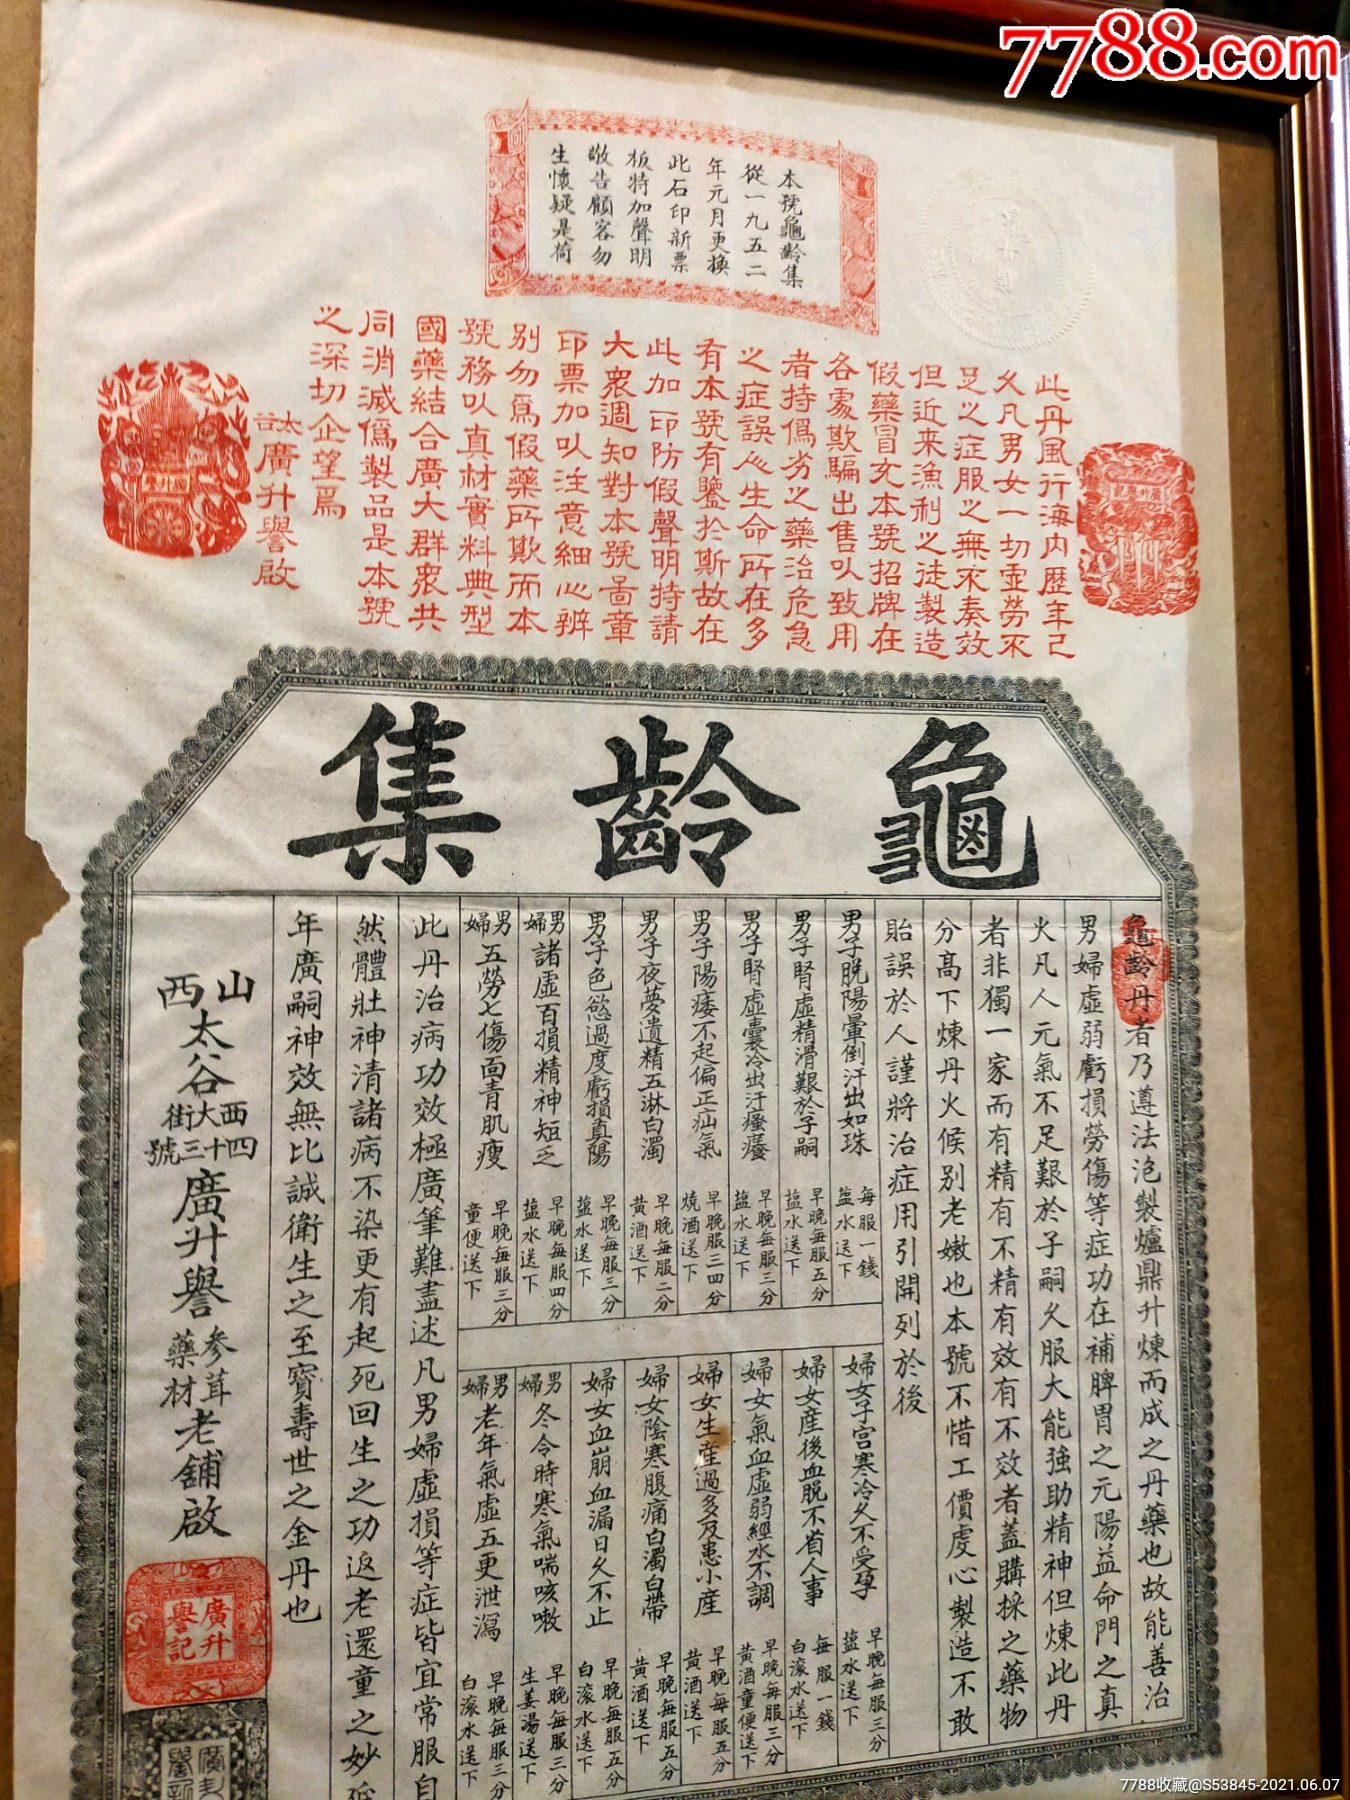 7788.com
本號龜齡集
從一九五二
年元月更換
此石印新票
板特加聲明
敬告顧客勿
生懷疑是荷
此丹風行海内歷年已
久凡男女一切虛勞不
足之症服之無不奏效
但近来漁利之徒製造
假藥冒充本號招牌在
各處欺騙出售以致用
者持僞劣之藥治危急
之症誤人生命所在多
有本號有鑒於斯故在
此加印防假聲明特請
大衆週知對本號圖章
印票加以注意細心辨
别勿爲假藥所欺而本
號務以真材實料典型
國藥結合廣大群衆共
同消滅僞製品是本號
之深切企望焉
太谷廣升譽啟
廣升譽記
龜齡集
龜齡丹者乃遵法泡製爐鼎升煉而成之丹藥也故能善治
男婦虛弱虧損勞傷等症功在補脾胃之元陽益命門之真
火凡人元氣不足艱於子嗣久服大能強助精神但煉此丹
者非獨一家而有精有不精有效有不效者蓋購採之藥物
分高下煉丹火候别老嫩也本號不惜工價虔心製造不敢
貽誤於人謹將治症用引開列於後
男子脱陽暈倒汗出如珠 每服一錢 盐水送下
男子腎虛精滑艱於子嗣 早晚每服五分 盐水送下
男子腎虛囊冷出汗瘙癢 早晚每服三分 盐水送下
男子陽痿不起偏正疝氣 早晚服三四分 燒酒送下
男子夜夢遺精五淋白濁 早晚每服二分 黄酒送下
男子色慾過度虧損真陽 早晚每服三分 盐水送下
男婦諸虛百損精神短乏 早晚每服四分 盐水送下
男婦五勞七傷面青肌瘦 早晚每服三分 童便送下
婦女子宫寒冷久不受孕 早晚每服三分 盐水送下
婦女產後血脱不省人事 每服一錢 白滚水送下
婦女氣血虛弱經水不調 早晚每服三分 黄酒童便送下
婦女生產過多及患小產 早晚每服五分 黄酒送下
婦女陰寒腹痛白濁白帶 早晚每服五分 黄酒送下
婦女血崩血漏日久不止 早晚每服五分 白滚水送下
男婦冬令時寒氣喘咳嗽 早晚每服三分 生姜湯送下
男婦老年氣虛五更泄瀉 早晚每服三分 白滚水送下
此丹治病功效極廣筆難盡述凡男婦虛損等症皆宜常服自
然體壯神清諸病不染更有起死回生之功返老還童之妙延
年廣嗣神效無比誠衛生之至寳壽世之金丹也
山西太谷西大街四十三號廣升譽參茸藥材老舖啟
廣升譽記
7788收藏@S53845-2021.06.07